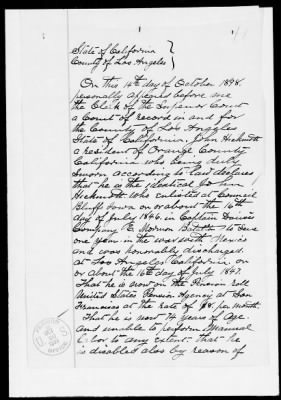 State of California
County of Los Angeles
On this 14th day of October 1898.
personally appeared before me
the Clerk of the Superior Court
a Court of record in and for
the County of Los Angeles
State of California, John
a resident of Orange County
California who being duly
sworn according to law declares
that he is the identical
who enlisted at Council
Bluff Iowa on or about the 16th
day of July 1846. in Captain
Company E Mormon to serve
one year in the war with Mexico
and was honorably discharged
at Los Angeles California on
or about the 16th day of July 1847.
That he is now on the Pension roll
United States Pension Agency at San
Francisco at the rate of per month.
That he is now 74 years of Age
and unable to perform Manual
labor to any extent. that he
is disabled also by reason of